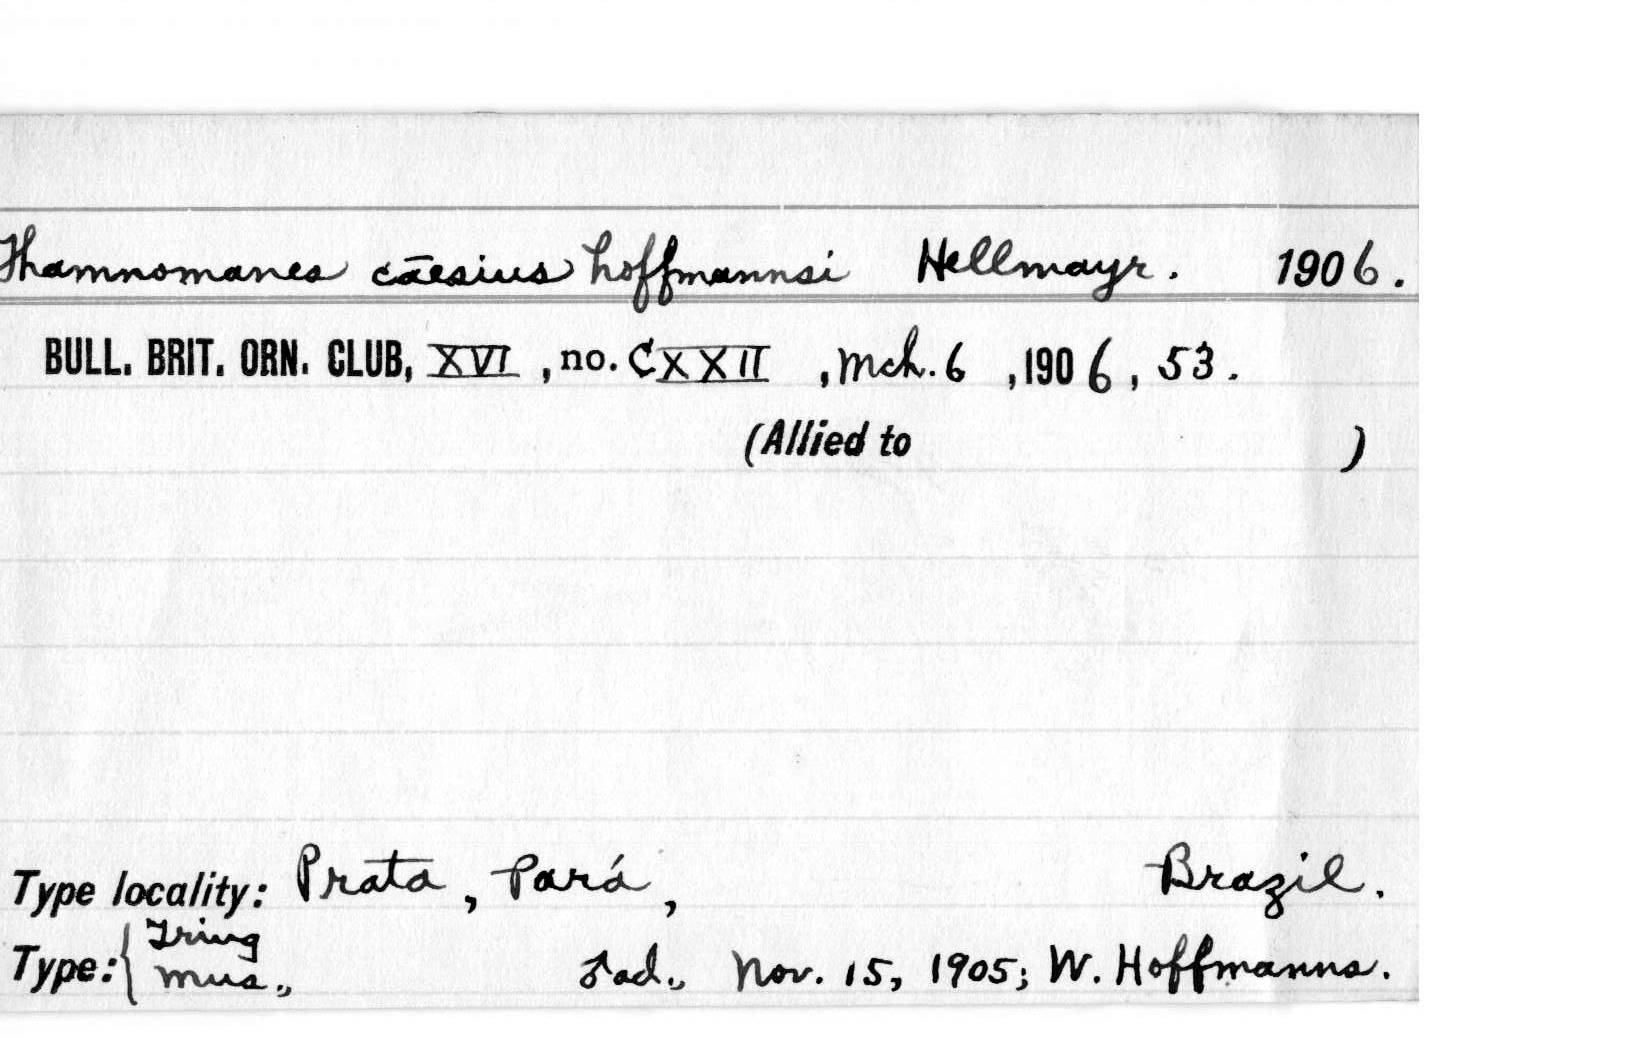 Thamnomanes cāesius hoffmannsi Hellmayr. 1906.
BULL. BRIT. ORN. CLUB, XVI, no. CXXII, Mch. 6, 1906, 53.
(Allied to )
Type locality: Prata, Pará, Brazil.
Type: { Tring
Mus., ♂ ad., Nov. 15, 1905; W. Hoffmanns.